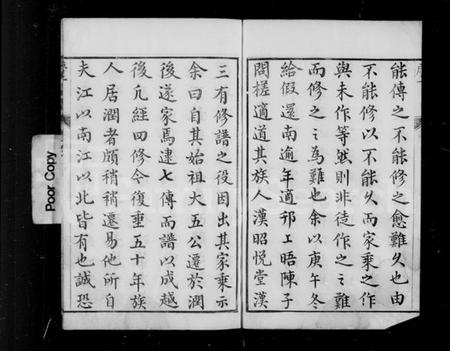 能傳之不能修之愈難久也由
不能修以不能久而家乘之作
與未作等然則非徒作之之難
而修之之為難也余以庚午冬
給假還南逾年適邗上晤陳子
閶槎適道其族人漢昭悅堂漢
三有修譜之役因出其家乘示
余曰自其始祖大五公遷於潤
後遂家焉逮七傳而譜以成越
後凢經四修今復重五十年族
人居潤者頗稍稍遷易他所自
夫江以南江以北皆有也誠恐
Poor Copy